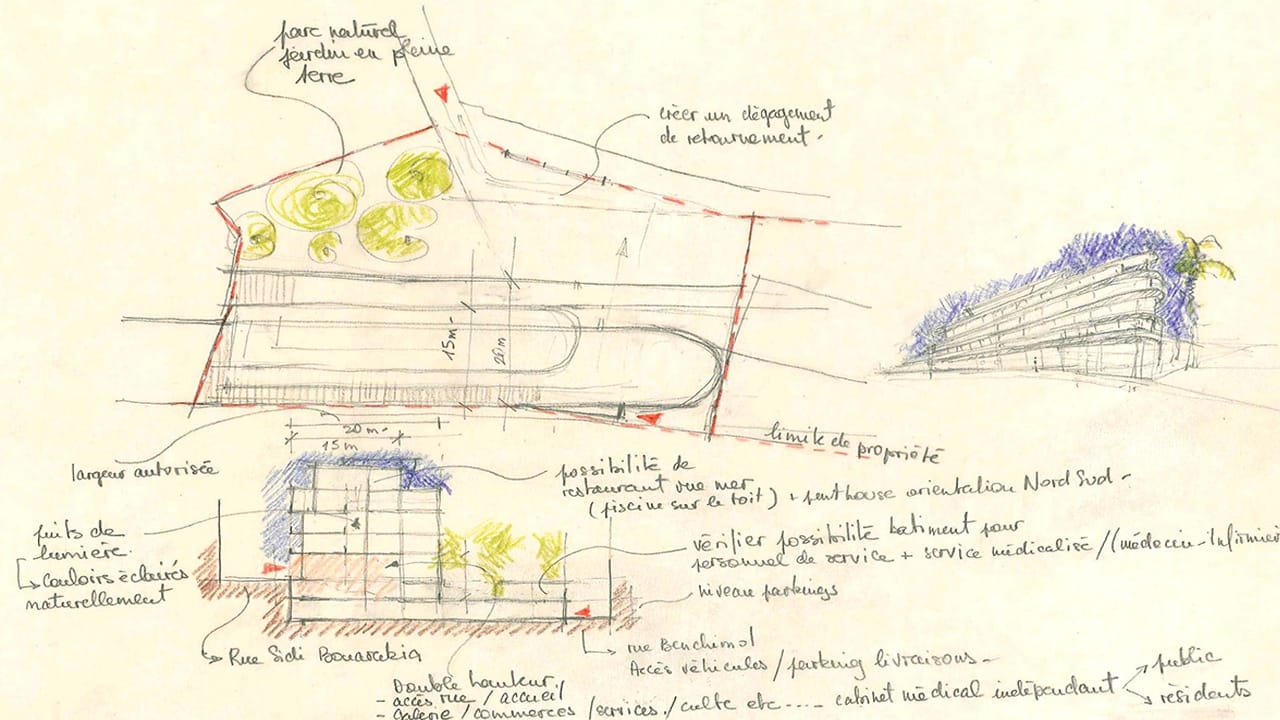 parc naturel
jardin en pleine
terre
créer un dégagement
de retournement.
15m-
20m
limite de propriété
20 m-
15m
largeur autorisée
possibilité de
restaurant vue mer
(piscine sur le toit) + penthouse orientation Nord Sud -
puits de
lumière.
↳ couloirs éclairés
naturellement
vérifier possibilité batiment pour
personnel de service + service médicalisé / (médecin-Infirmier
niveau parkings
Rue Sidi Bouarakia
rue Benchimol
Accès véhicules / parking livraisons -
Double hauteur
- accès rue / accueil
- Galerie / commerces / services / culte etc ---- cabinet médical indépendant
public
résidents